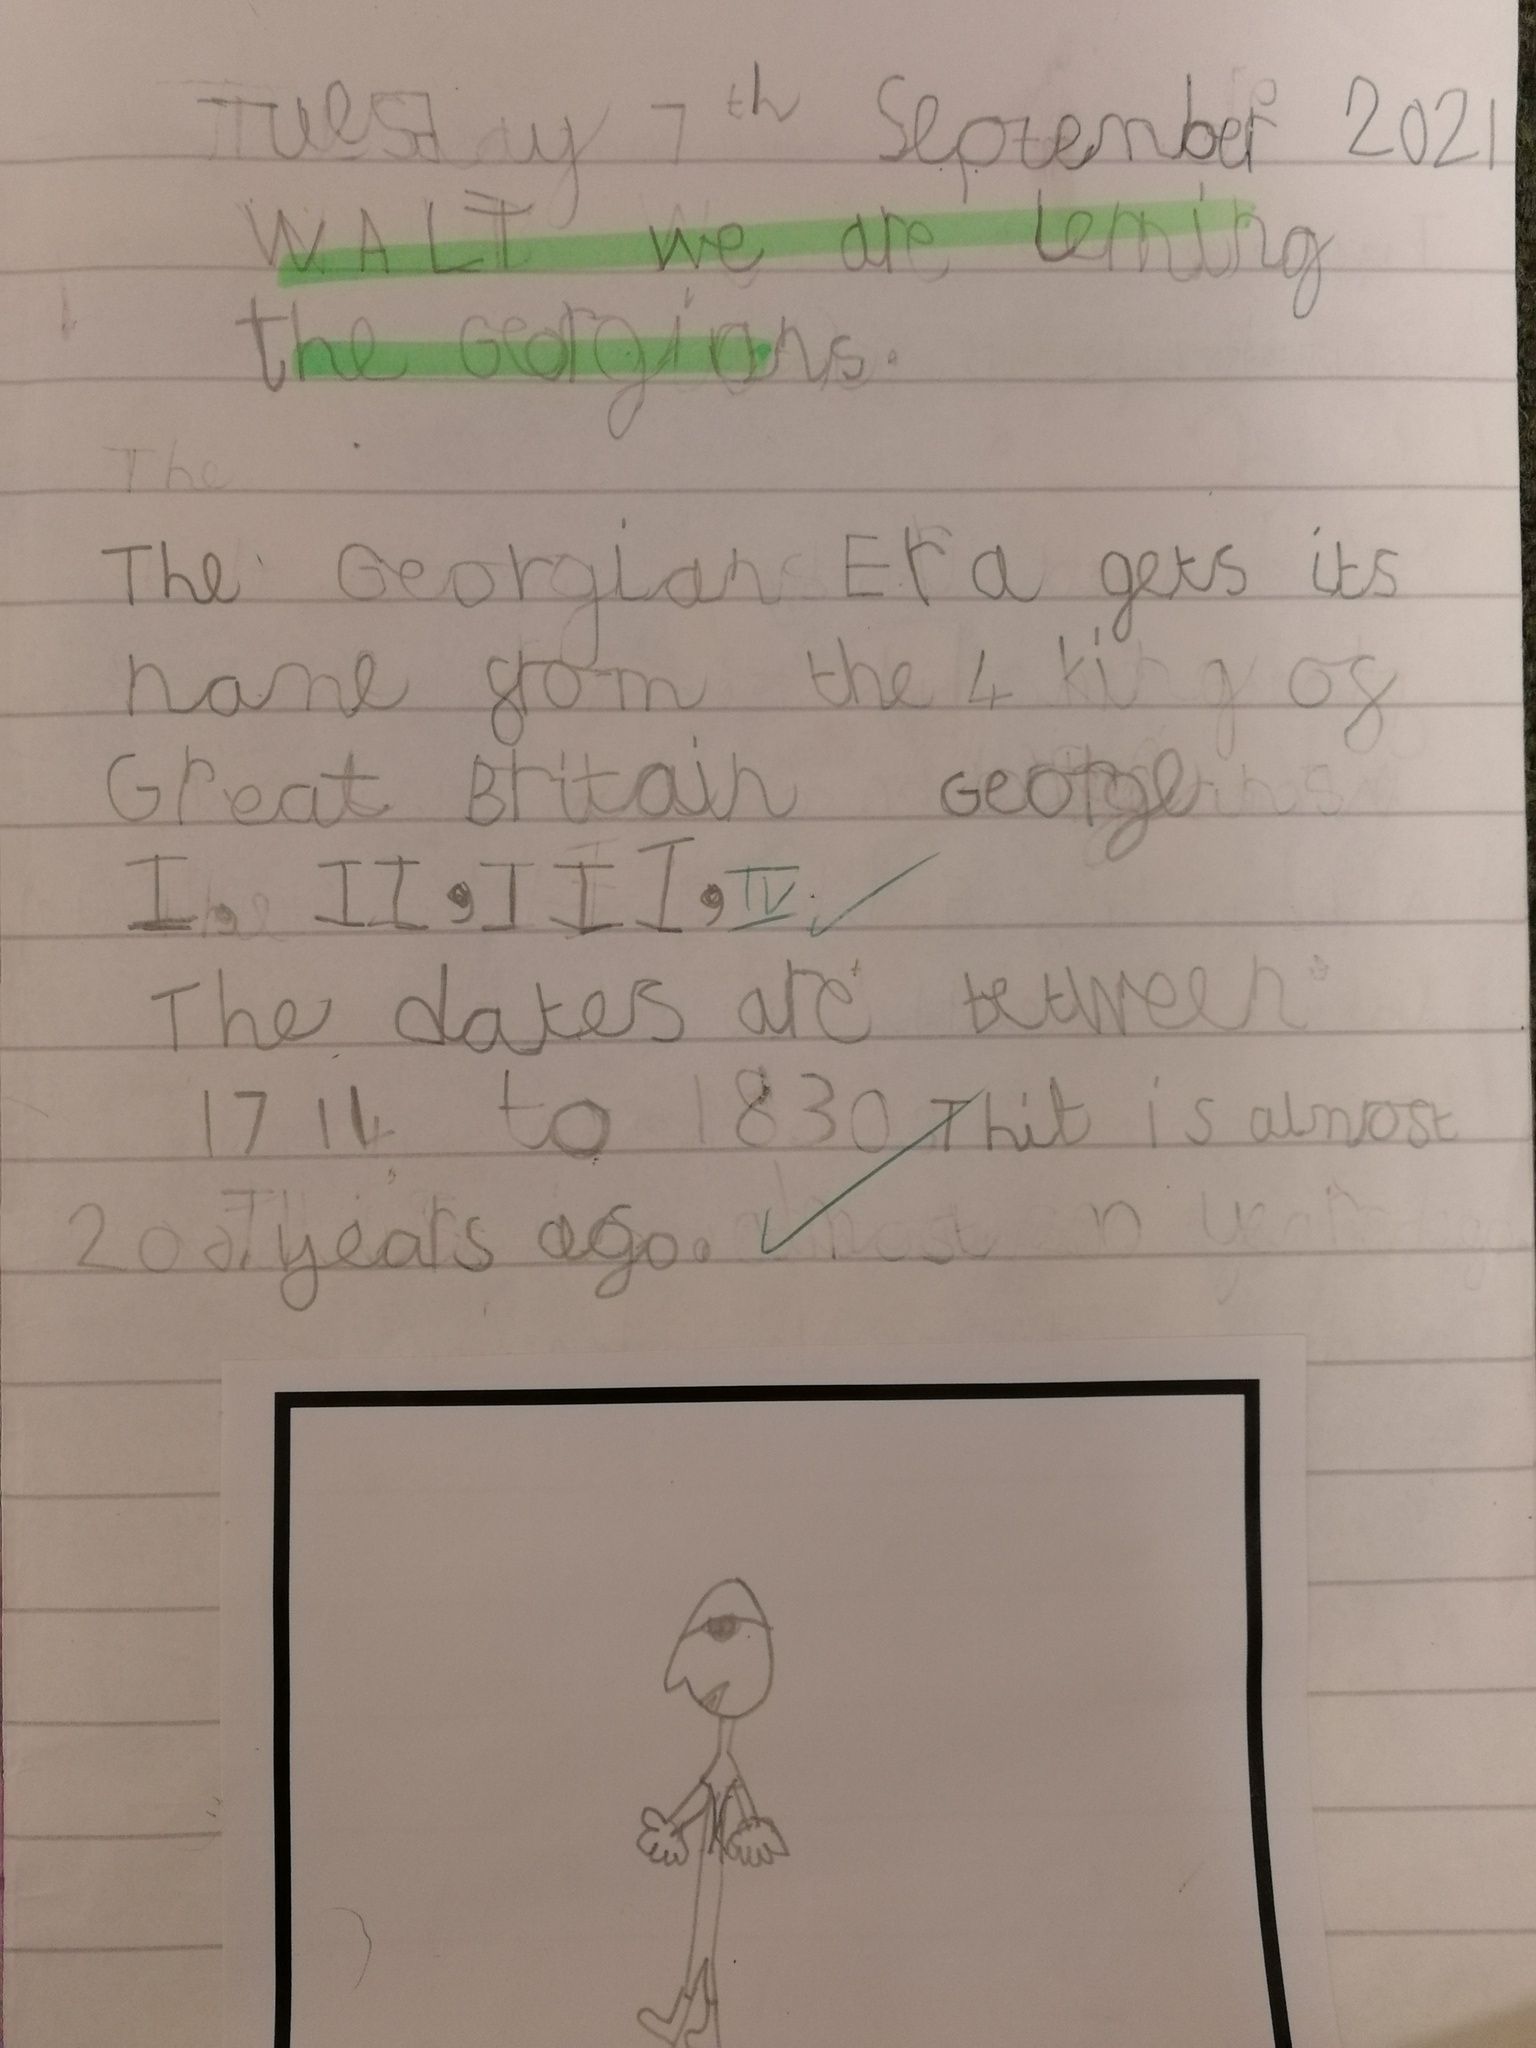 Tuesday 7th September 2021
WALT we are lerning
the Georgians.
The
The Georgian Era gets its
name from the 4 king of
Great Britain George
I, II, III, IV.
The dates are between
1714 to 1830 Thit is almost
200 years ago.